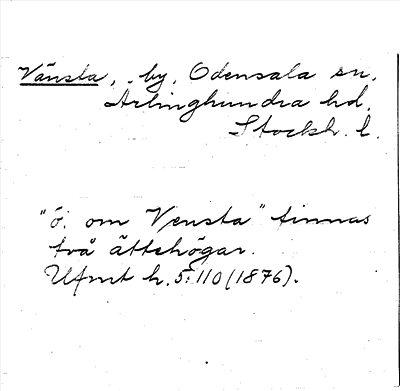 Vänsta, by, Odensala sn,
Ärlinghundra hd,
Stockh. l.
"ö. om Vensta" finnas
två ättehögar.
Ufmt h. 5:110 (1876).